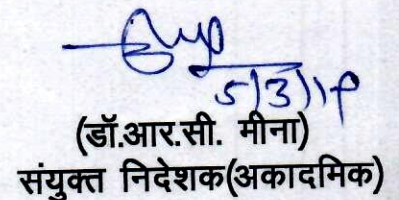 (डॉ.आर.सी. मीना)
संयुक्त निदेशक(अकादमिक)